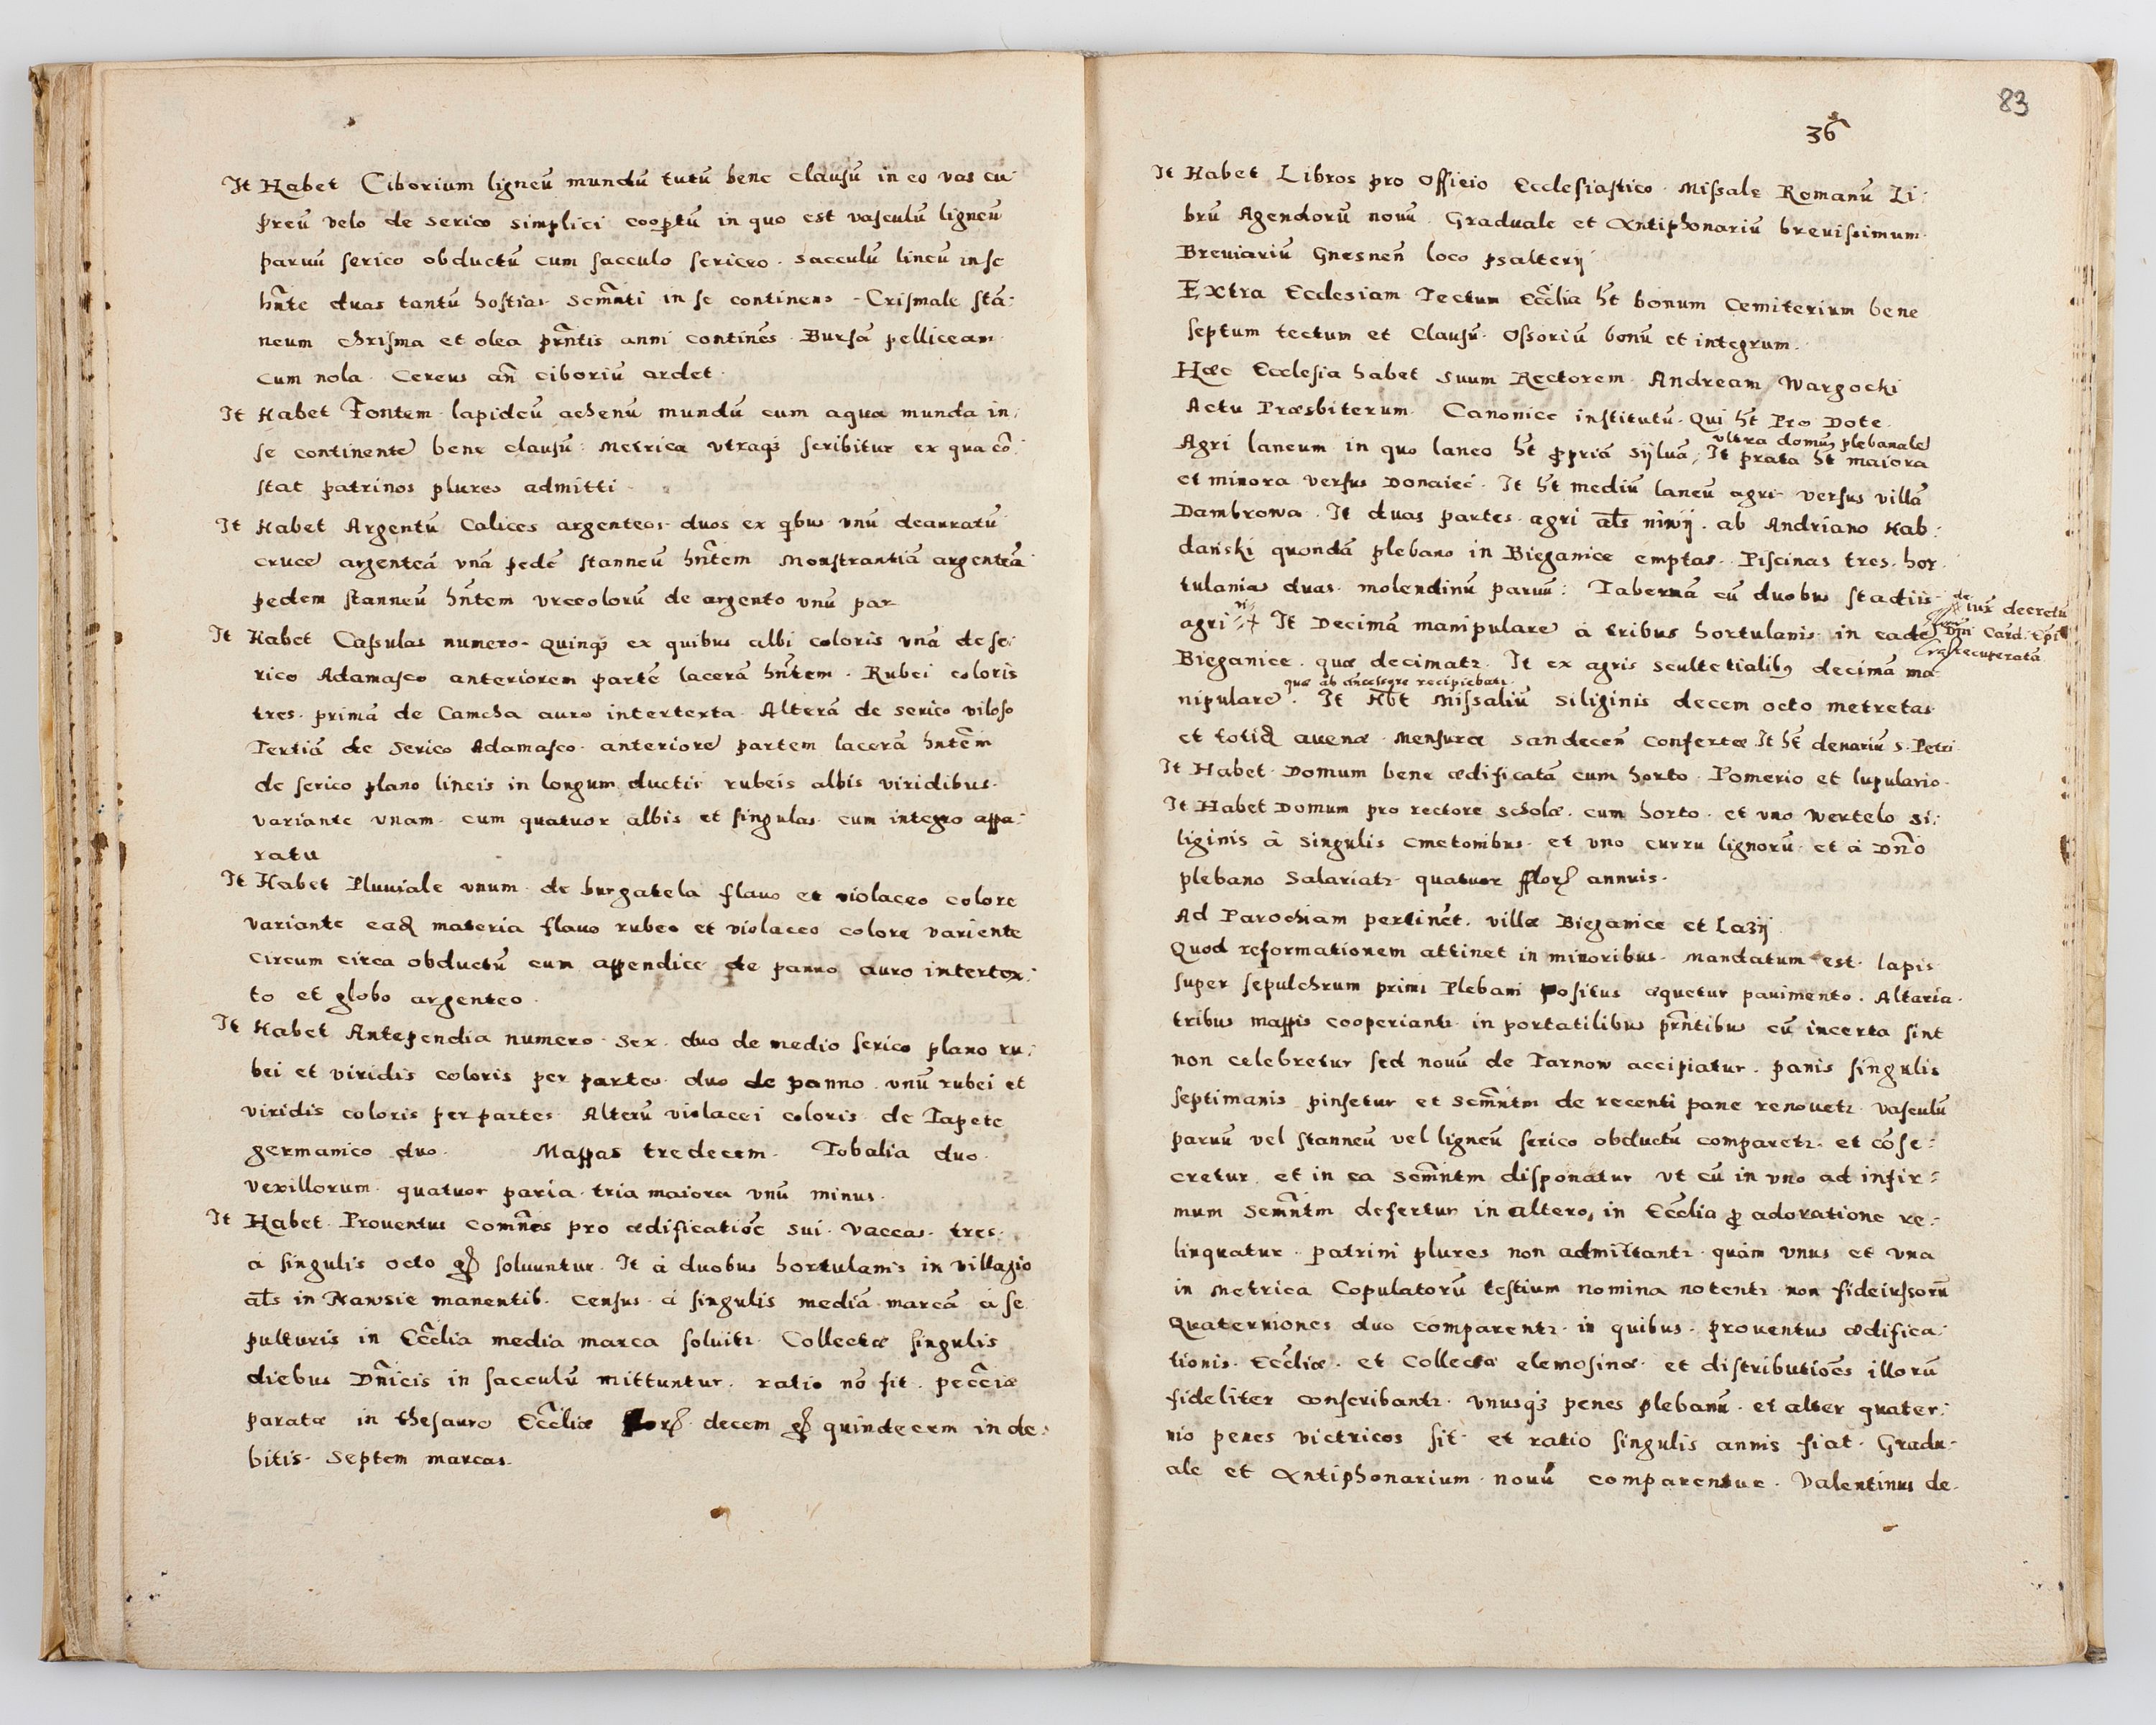 It Habet Ciborium ligneū mundū tutū bene clausū in eo vas cu
preū velo de serico simplici coopertū in quo est vasculū ligneū
paruū serico obductū cum sacculo sericeo. Sacculū lineū in se
hn̄te duas tantū hostias Scm̄nti in se continens. Crismale stā:
neum chrisma et olea prn̄tis anni continēs. Bursā pelliceam
cum nola. Cereus an̄ ciboriū ardet.
It Habet Fontem lapideū aehenū mundū cum aqua munda in
se continente bene clausū: Metrica vtraq₃ scribitur ex qua cō
stat patrinos plures admitti.
It Habet Argentū Calices argenteos duos ex qbus vnū deauratū
cruce argenteā vnā pede stanneū hn̄tem Monstrantiā argenteā
pedem stanneū hn̄tem vrceolorū de argento vnū par
It Habet Casulas numero quinq₃ ex quibus albi coloris vnā de se:
rico Adamasco anteriorem parte lacerā hn̄tem. Rubei coloris
tres. primā de Camcha auro intertexta. Alterā de serico viloso
Tertiā de Serico Adamasco anteriore partem lacerā hn̄tem
de serico plano lineis in longum ductis rubeis albis viridibus.
variante vnam. cum quatuor albis et singulas cum integro appa:
ratu
It Habet Pluuiale vnum de burgatela flauo et violaceo colore
variante eadē materia flauo rubeo et violaceo colore variente
circum circa obductū cum appendice de panno auro intertex:
to et globo argenteo.
It Habet Antependia numero Sex. duo de medio serico plano ru:
bei et viridis coloris per partes duo de panno. vnū rubei et
viridis coloris per partes Alterū violacei coloris de Tapete
germanico duo. Mappas tredecem. Tobalia duo.
vexillorum quatuor paria. tria maiora vnū minus.
It Habet Prouentus comn̄es pro ædificatiōe sui. Vaccas tres.
à singulis octo gr̄ soluuntur. It à duobus hortulanis in villagio
als in Nawsie manentib. census à singulis mediā marcā à se
pulturis in Eccłia media marca soluitr. Collectæ singulis
diebus Dn̄icis in sacculū mittuntur. ratio nō fit. peccīæ
paratæ in thesauro Eccłiæ flor̄. decem gr̄ quindecem in de:
bitis. Septem marcas.
83
36
It Habet Libros pro Officio Ecclesiastico. Missale Romanū Li:
brū Agendorū nouū. Graduale et Antiphonariū breuissimum.
Breuiariū Gnesnen̄ loco psalterij
Extra Ecclesiam Tectum Eccłia ht bonum Cemiterium bene
septum tectum et Clausū. Ossoriū bonū et integrum.
Hæc Ecclesia habet Suum Rectorem Andream Wargocki
Actu Præsbiterum Canonice institutū. Qui ht Pro Dote
vltra domū plebanale
Agri laneum in quo laneo ht ꝓpriā Syluā, It prata ht maiora
et minora versus Donaiec. It ht mediū laneū agri versus villā
Dambrowa. It duas partes agri als niwij. ab Andriano Hab:
dański quondā plebano in Bieganice emptas. Piscinas tres. hor
tulanias duas. molendinū paruū: Tabernā cū duobus stadiis
agri It Decimā manipulare à tribus hortulanis in eade
ius decretū
Dn̄i Card: Ep̄i
recuperatā
Bieganice. quæ decimatr. It ex agris scultetialib9 decimā ma
nipulare. It Hbt Missaliū Siliginis decem octo metretas
et totidē auenæ Mensuræ Sandecen̄ confertæ It ht denariū S. Petri
It Habet Domum bene ædificatā cum horto. Pomerio et lupulario.
It Habet Domum pro rectore Scholæ. cum horto. et vno wertelo Si:
liginis à singulis cmetombus et vno curru lignorū. et à Dn̄o
plebano Salariatr quatuor flor̄ annuis.
Ad Parochiam pertinēt. villæ Bieganice et Lazij
Quod reformationem attinet in minoribus. Mandatum est. lapis
super sepulchrum primi Plebani positus æquetur pauimento. Altaria
tribus mappis cooperiantr in portatilibus prn̄tibus cū incerta sint
non celebretur sed nouū de Tarnow accipiatur. panis singulis
septimanis pinsetur et Scm̄ntm de recenti pane renouetr. vasculū
paruū vel stanneū vel ligneū serico obductū comparetr. et cōse:
cretur. et in ea Scm̄ntm disponatur vt cū in vno ad infir:
mum Scm̄ntm defertur in altero, in Eccłia ꝓ adoratione re:
linquatur. patrini plures non admittantr quàm vnus et vna
in Metrica Copulatorū testium nomina notentr non fideiussorū
Quaterniones duo comparentr in quibus. prouentus ædifica:
tionis. Eccłiæ. et Collectæ elemosinæ et distributiōes illorū
fideliter conscribantr. vnusq₃ penes plebanū. et alter quater:
nio penes victricos sit et ratio singulis annis fiat. Gradu
ale et Antiphonarium nouū comparentur. Valentinus de